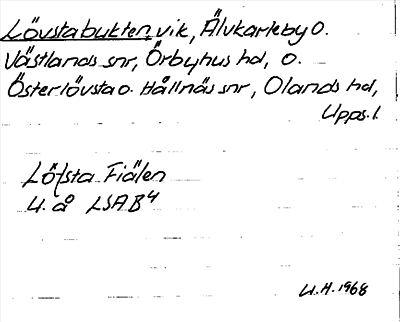 Lövstabukten, vik, Älvkarleby o.
Västlands snr, Örbyhus hd, o.
Österlövsta o. Hållnäs snr, Olands hd,
Upps. l.
Löfsta Fiälen
U. å LSAB4
U.H. 1968